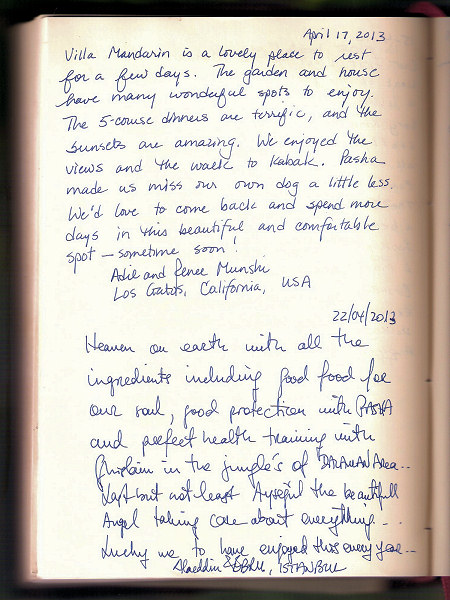 April 17, 2013
Villa Mandarin is a lovely place to rest
for a few days. The garden and house
have many wonderful spots to enjoy.
The 5-course dinners are terrific, and the
sunsets are amazing. We enjoyed the
views and the walk to Kabak. Pasha
made us miss our own dog a little less.
We'd love to come back and spend more
days in this beautiful and comfortable
spot — sometime soon!
and Renee Munshi
Los Gatos, California, USA
22/04/2013
Heaven on earth with all the
ingredients including good food for
our soul, good protection with PASHA
and perfect health training with
Ghislain in the jungle's of DALAMAN Area..
Last but not least Ayşegül the beautifull
Angel taking care about everything...
Lucky me to have enjoyed this every year...
Alaeddin & EBRU, ISTANBUL